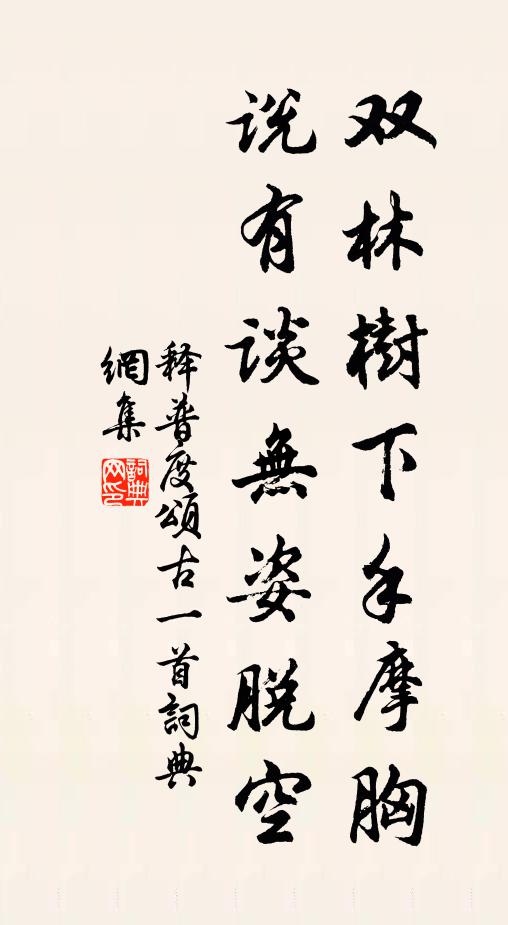 双林樹下手摩胸
说有谈無姿脱空
释普度頌古一首詞典
網集
詞典網印